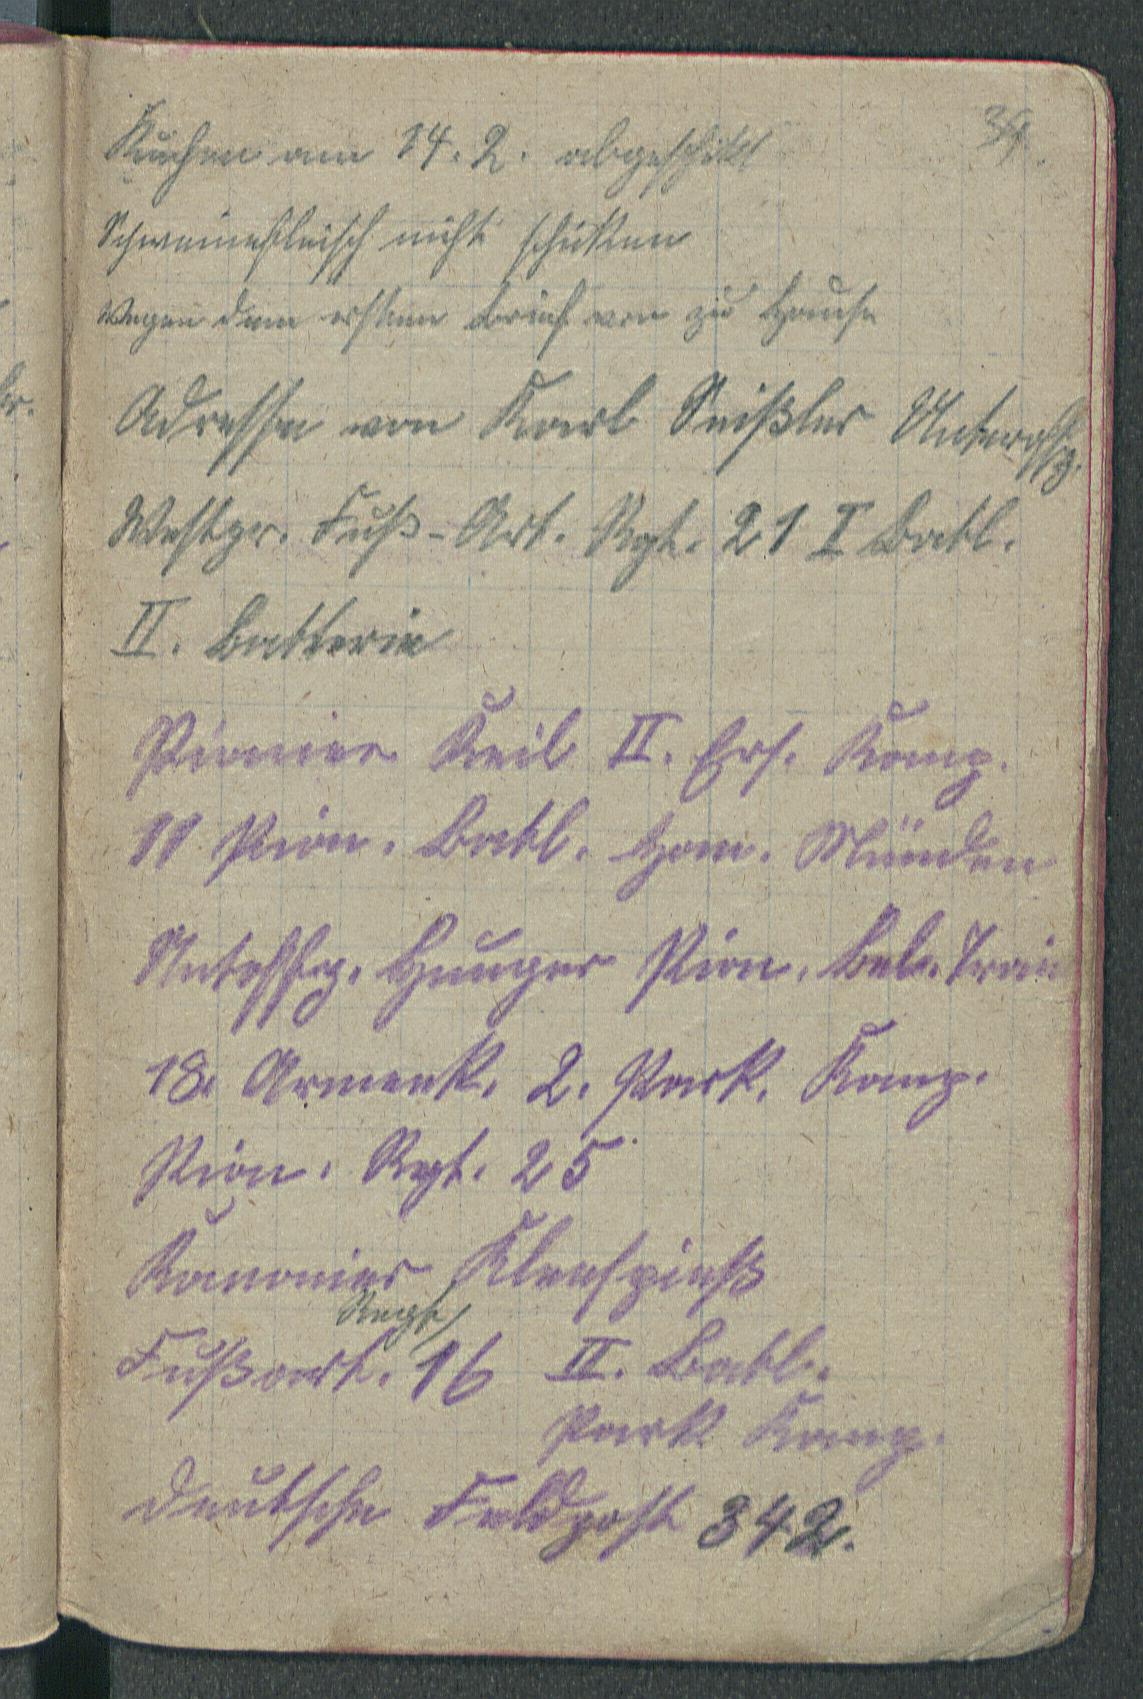 39.
Kuchen am 14. 2. abgeschikt
Schweinefleisch nicht schiken
wegen dem ersten Brief von zu Hause
Adresse von Karl Seißler Unteroffz.
Westpr. Fuß-Art. Rgt. 21 I Batl.
II. Batterie
Pionier Keil II. Ers. Komp.
11 Pion. Batl. Han. Münden
Unteoffz. Hunger Pion. Bel. Train
18. Armeek. 2. Park. Komp.
Pion. Regt. 25
Kanonier Kleespieß
Regt.
Fußart. 16 II. Batl.
Park Komp.
Deutsche Feldpost 342.